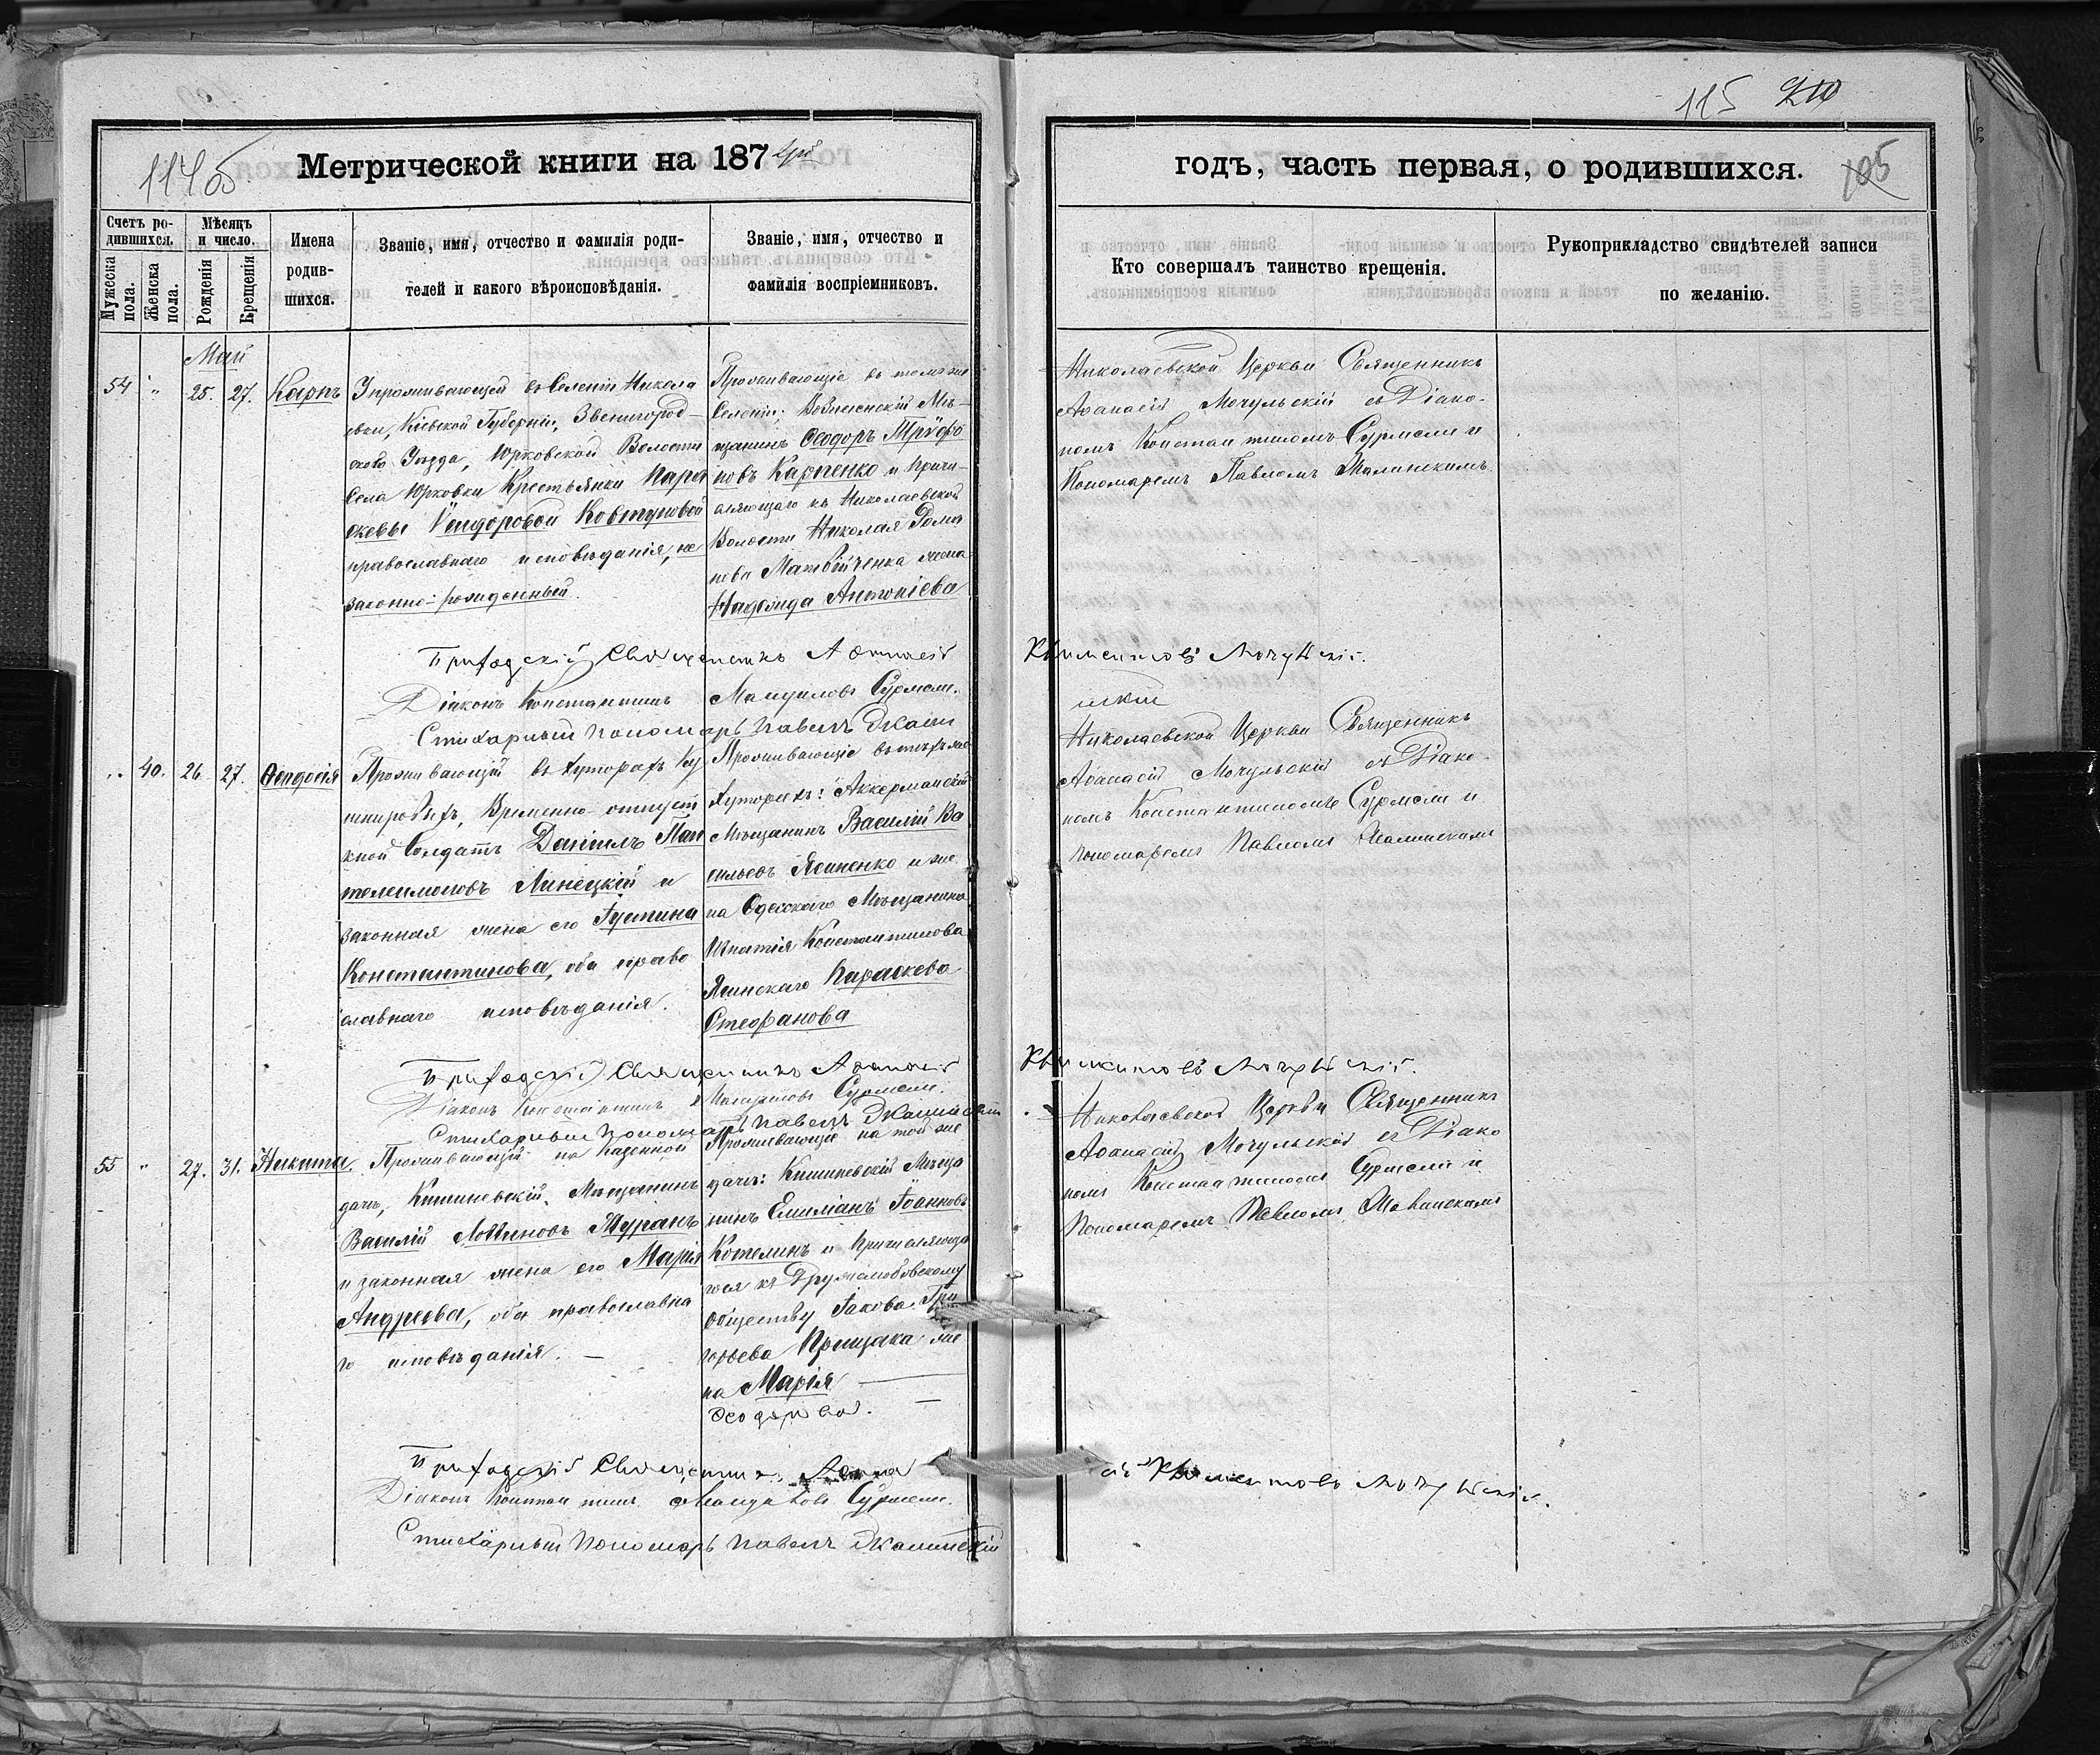 115 210
114об
Метрической книги на 187
годъ, часть первая, о родившихся.
105
Счетъ ро-
дившихся.
Мужеска
пола.
Женска
пола.
Мѣсяцъ
и число.
Рожденія
Крещенія
Имена
родив-
шихся.
Званіе, имя, отчество и фамилія роди-
телей и какого вѣроисповѣданія.
Званіе, имя, отчество и
фамилія воспріемниковъ.
Кто совершалъ таинство крещенія.
Рукоприкладство свидѣтелей записи
по желанію.
Май
54 " 25. 27. Карпъ
Упроживающей въ Селеніи Никола
евки, Кіевской Губерніи, Звенигород-
скаго Уѣзда, Юрковской Волости
Села Юрковки Крестьянки Пара
скевы Исидоровой Ковтуновой
православнаго исповѣданія, не
законно-рожденный.
Проживающіе въ томъ же
Селеніи: Вознесенскій Мѣ-
щанинъ Ѳеодоръ Труфо
новъ Карпенко и причи-
сляющаго къ Николаевской
Волости Николая Рома
нова Матвѣйченка жена
Надежда Антоніева
Николаевской Церкви Священникъ
Аѳанасій Мочульскій съ Діако-
номъ Константиномъ Сурмели и
Пономаремъ Павломъ Жалинскимъ
Приходскій Священникъ Аѳанасій Климентовъ Мочульскій.
Діаконъ Константинъ Мануиловъ Сурмели.
Стихарный пономарь Павелъ Жалин
скій
" 40. 26. 27. Ѳеодосія
Проживающій въ Хуторахъ Ку
шнировыхъ, Временно-отпуск
кной Солдатъ Даніилъ Пан
телеимоновъ Линецкій и
законная жена его Іустина
Константинова, оба право
славнаго исповѣданія.
Проживающіе въ тѣхъ же
Хуторахъ: Аккерманскій
Мѣщанинъ Василій Ва
сильевъ Ясиненко и же
на Одесскаго Мѣщанина
Игнатія Константинова
Ясинскаго Параскева
Стефанова
Николаевской Церкви Священникъ
Аѳанасій Мочульскій съ Діако-
номъ Константиномъ Сурмели и
пономаремъ Павломъ Жалинскимъ
Приходскій Священникъ Аѳанасій Климентовъ Мочульскій.
Діаконъ Константинъ Мануиловъ Сурмели.
Стихарный пономарь Павелъ Жалинскій
55 " 27. 31. Никита.
Проживающій на Казенной
дачѣ, Кишиневскій Мѣщанинъ
Василій Мурянъ
и законная жена его Марія
Андреева, оба православна
го исповѣданія. —
Проживающіе на той же
дачѣ: Кишиневскій Мѣща
нинъ Емиліанъ Іоанновъ
Котелинъ и причисляюща
гося къ
Обществу Іакова Гри
горьева Прищака же
на Марія —
Ѳеодорова. —
Николаевской Церкви Священникъ
Аѳанасій Мочульскій съ Діако
номъ Константиномъ Сурмели и
Пономаремъ Павломъ Жалинскимъ
Приходскій Священникъ Аѳана
сій Климентовъ Мочульскій.
Діаконъ Константинъ Мануиловъ Сурмели.
Стихарный Пономарь Павелъ Жалинскій